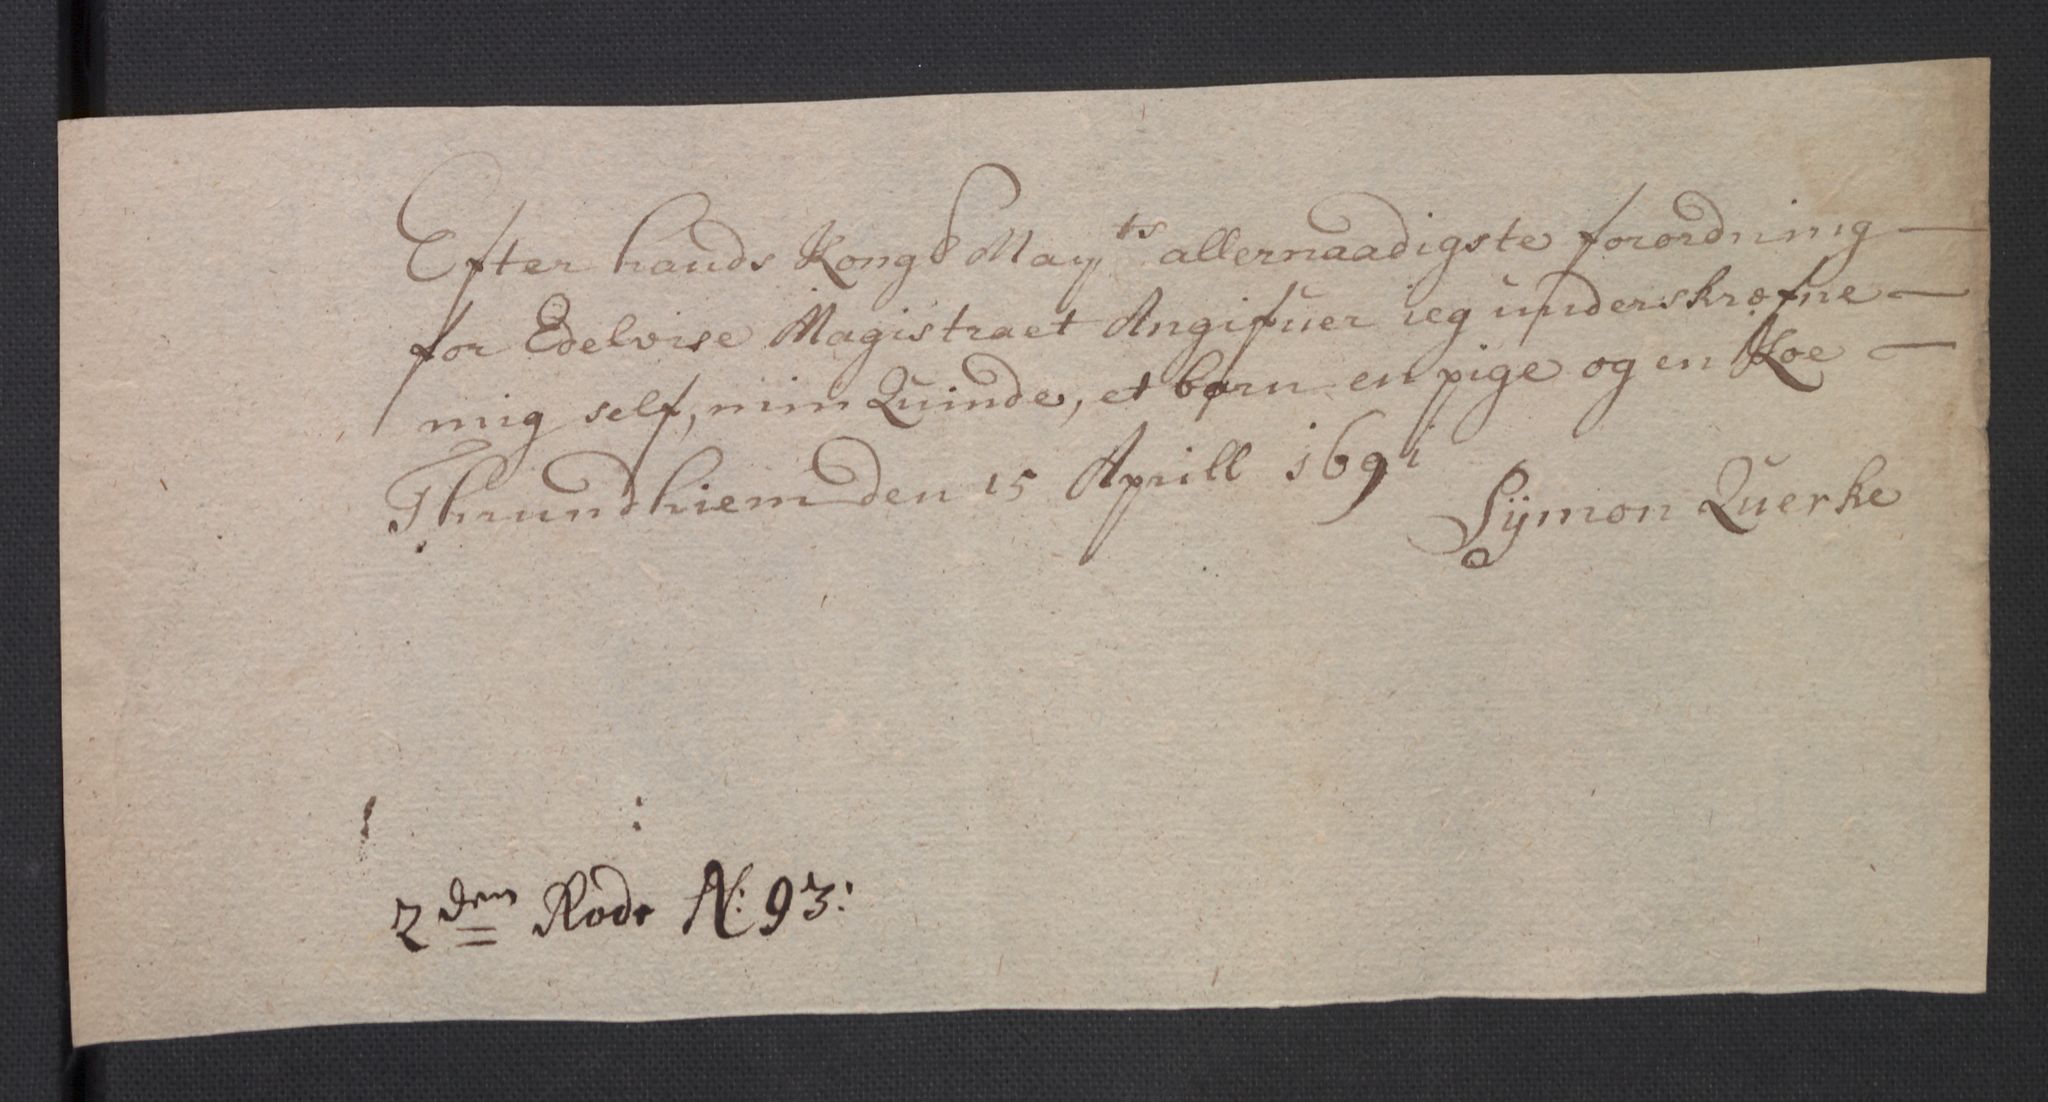 Efter hands Kongs Mayts allernaadigste forordning
for Edelvise Magistraet Angifuer ieg underskræfne
mig self, min Quinde, et børn en pige og en Koe
Thrundhiem den 15 Aprill 1691
Sÿmon Querke
2den Rode N: 93: